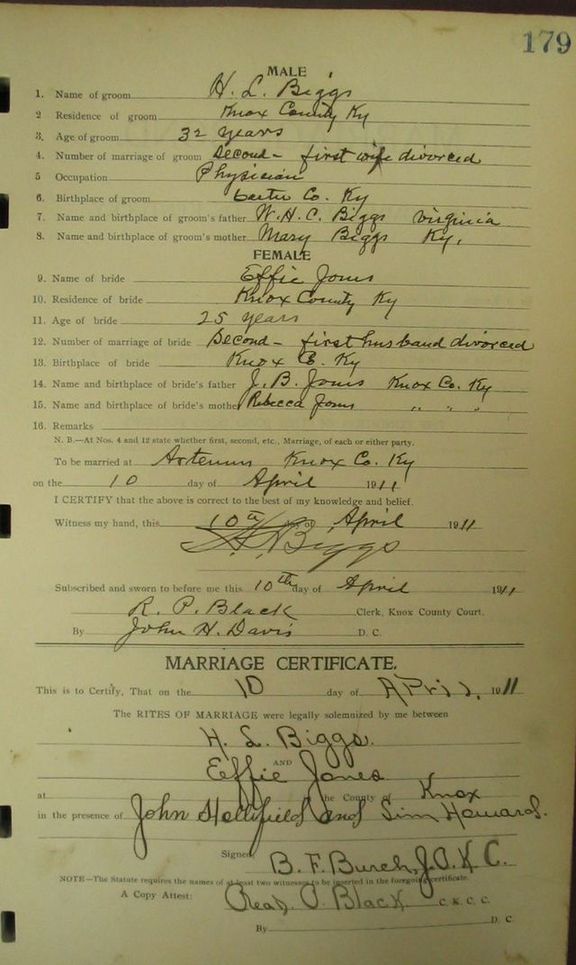 179
MALE
1. Name of groom H. L. Biggs
2 Residence of groom Knox County Ky
3. Age of groom 32 years
4. Number of marriage of groom Second - first wife divorced
5 Occupation Physician
6. Birthplace of groom Carter Co. Ky
7. Name and birthplace of groom's father W. H. C. Biggs Virginia
8. Name and birthplace of groom's mother Mary Biggs Ky.
FEMALE
9. Name of bride Effie Jones
10. Residence of bride Knox County Ky
11. Age of bride 25 years
12. Number of marriage of bride Second - first husband divorced
13. Birthplace of bride Knox Co. Ky
14. Name and birthplace of bride's father J. B. Jones Knox Co. Ky
15. Name and birthplace of bride's mother Rebecca Jones " " "
16. Remarks
N. B.—At Nos. 4 and 12 state whether first, second, etc., Marriage, of each or either party.
To be married at Artemus Knox Co. Ky
on the 10 day of April 1911
I CERTIFY that the above is correct to the best of my knowledge and belief.
Witness my hand, this 10th day of April 1911
H. L. Biggs
Subscribed and sworn to before me this 10th day of April 1911
R. P. Black Clerk, Knox County Court.
By John H. Davis D. C.
MARRIAGE CERTIFICATE.
This is to Certify, That on the 10 day of April, 1911
The RITES OF MARRIAGE were legally solemnized by me between
H. L. Biggs.
AND
Effie Jones
at the County of Knox
in the presence of John and Sim Howard.
Signed B. F. Burch, J. P. K. C.
NOTE—The Statute requires the names of at least two witnesses to be inserted in the foregoing certificate.
A Copy Attest: Read P. Black C. K. C. C.
By D. C.